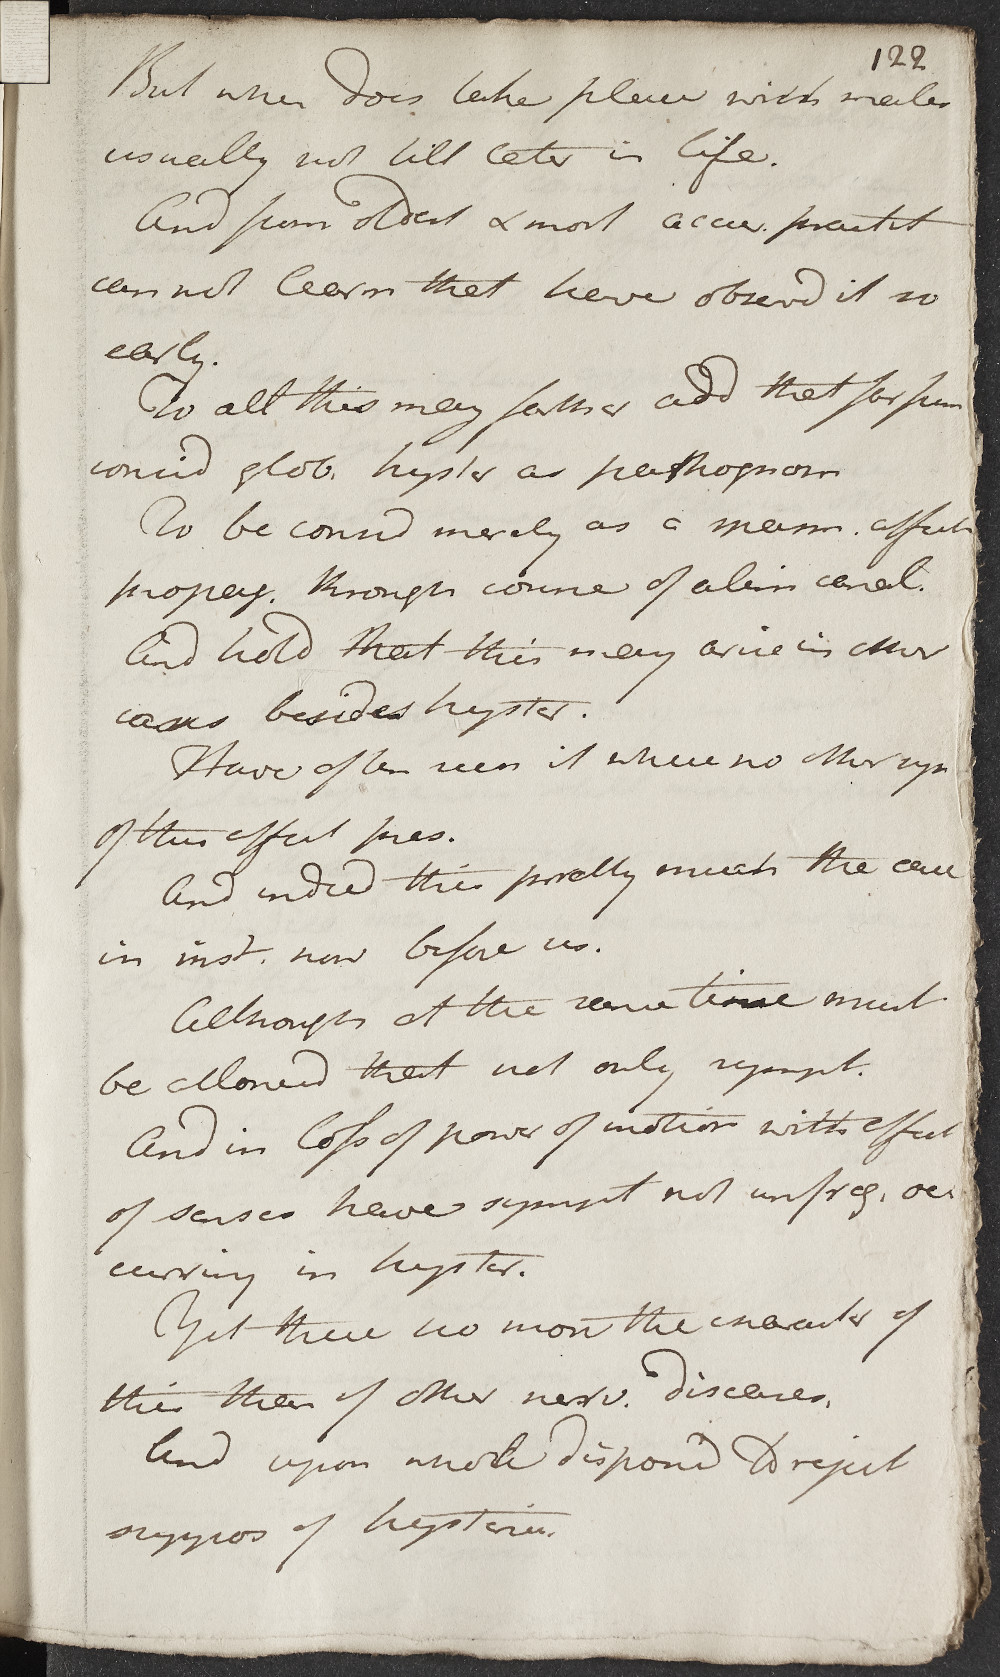 122
But when does take place with males
usually not till later in life.
And from oldest & most accur. practit
can not learn that have observd it so
early.
To all this may farther add that far from
consid glob. hyster as pathognom
To be consd merely as a spasm. affect
propag. through course of alim canal.
And hold that this may arise in other
cases besides hyster.
Have often seen it where no other sym
of this affect pres.
And indeed this pretty much the case
in inst. now before us.
Although at the same time must
be allowed that not only sympt.
And in loss of power of motion with affect
of senses have sympt not unfreq. oc
curring in hyster.
Yet these no more the character of
this than of other nerv. diseases.
And upon whole disposed to reject
suppos of hysteria.